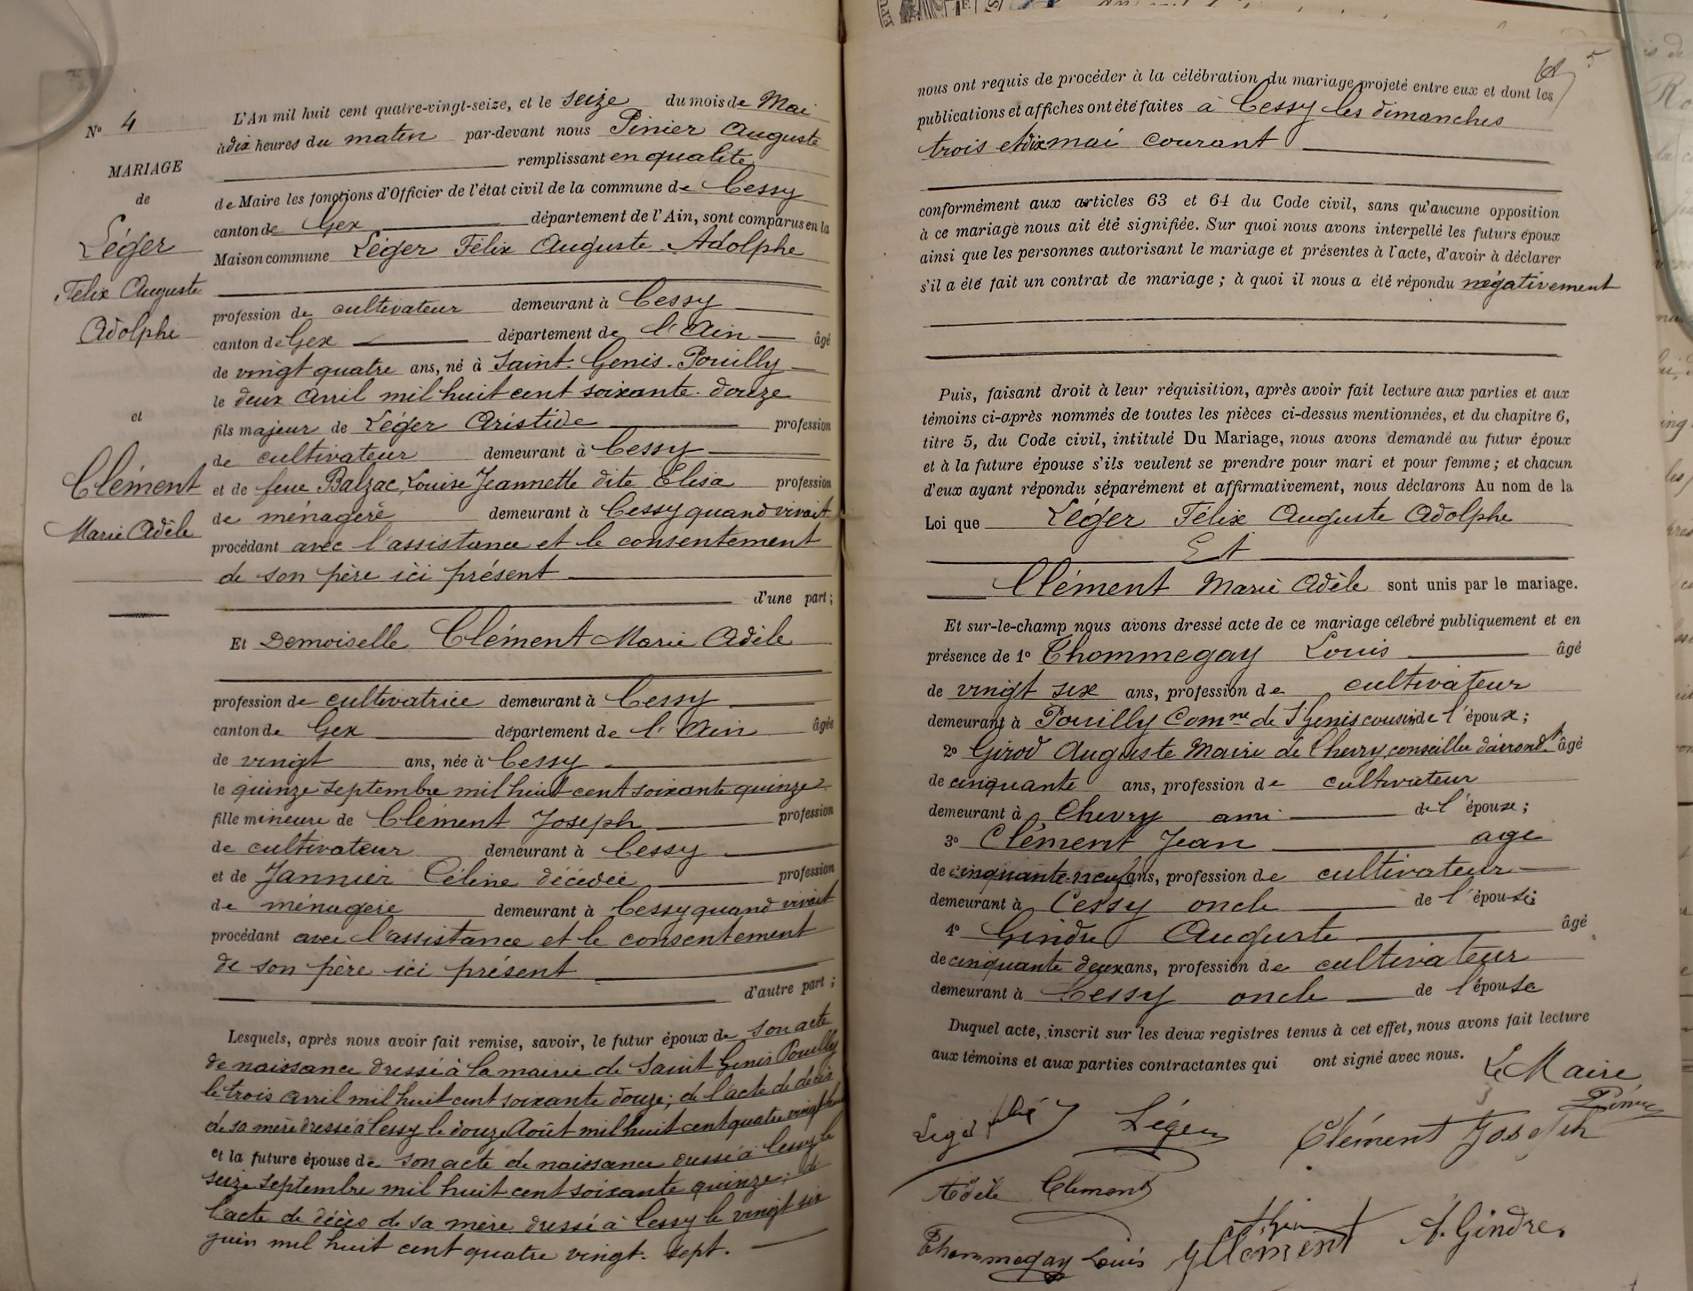 N° 4
MARIAGE
de
Léger
Félix Auguste
Adolphe
et
Clément
Marie Adèle
L'An mil huit cent quatre-vingt-seize, et le seize du mois de Mai
à dix heures du matin par-devant nous Pinier Auguste
remplissant en qualité
de Maire les fonctions d'Officier de l'état civil de la commune de Cessy
canton de Gex département de l'Ain, sont comparus en la
Maison commune Léger Félix Auguste Adolphe
profession de cultivateur demeurant à Cessy
canton de Gex département de l'Ain âgé
de vingt quatre ans, né à Saint-Genis-Pouilly
le deux avril mil huit cent soixante-douze
fils majeur de Léger Aristide profession
de cultivateur demeurant à Cessy
et de feue Balzac Louise Jeannette dite Elisa profession
de ménagère demeurant à Cessy quand vivait
procédant avec l'assistance et le consentement
de son père ici présent
d'une part;
Et Demoiselle Clément Marie Adèle
profession de cultivatrice demeurant à Cessy
canton de Gex département de l'Ain âgée
de vingt ans, née à Cessy
le quinze septembre mil huit cent soixante quinze
fille mineure de Clément Joseph profession
de cultivateur demeurant à Cessy
et de Jannier Céline décédée profession
de ménagère demeurant à Cessy quand vivait
procédant avec l'assistance et le consentement
de son père ici présent
d'autre part;
Lesquels, après nous avoir fait remise, savoir, le futur époux de son acte
de naissance dressé à la mairie de Saint Genis Pouilly
le trois avril mil huit cent soixante douze; de l'acte de décès
de sa mère dressé à Cessy le douze Août mil huit cent quatre vingt
et la future épouse de son acte de naissance dressé à Cessy le
seize septembre mil huit cent soixante quinze; de
l'acte de décès de sa mère dressé à Cessy le vingt six
juin mil huit cent quatre vingt-sept.
5
nous ont requis de procéder à la célébration du mariage projeté entre eux et dont les
publications et affiches ont été faites à Cessy les dimanches
trois et dix mai courant
conformément aux articles 63 et 64 du Code civil, sans qu'aucune opposition
à ce mariage nous ait été signifiée. Sur quoi nous avons interpellé les futurs époux
ainsi que les personnes autorisant le mariage et présentes à l'acte, d'avoir à déclarer
s'il a été fait un contrat de mariage; à quoi il nous a été répondu négativement
Puis, faisant droit à leur réquisition, après avoir fait lecture aux parties et aux
témoins ci-après nommés de toutes les pièces ci-dessus mentionnées, et du chapitre 6,
titre 5, du Code civil, intitulé Du Mariage, nous avons demandé au futur époux
et à la future épouse s'ils veulent se prendre pour mari et pour femme; et chacun
d'eux ayant répondu séparément et affirmativement, nous déclarons Au nom de la
Loi que Léger Félix Auguste Adolphe
Et
Clément Marie Adèle sont unis par le mariage.
Et sur-le-champ nous avons dressé acte de ce mariage célébré publiquement et en
présence de 1° Thommegay Louis âgé
de vingt six ans, profession de cultivateur
demeurant à Pouilly Comne de St Genis cousin de l'époux;
2° Girod Auguste Maire de Chevry, conseiller d'arrondt âgé
de cinquante ans, profession de cultivateur
demeurant à Chevry ami de l'époux;
3° Clément Jean age
de cinquante-neuf ans, profession de cultivateur
demeurant à Cessy oncle de l'épouse;
4° Gindre Auguste âgé
de cinquante deux ans, profession de cultivateur
demeurant à Cessy oncle de l'épouse
Duquel acte, inscrit sur les deux registres tenus à cet effet, nous avons fait lecture
aux témoins et aux parties contractantes qui ont signé avec nous. Le Maire
Pinier
Léger Léger Clément Joseph
Adèle Clément
Thommegay Louis Clément A. Gindre.